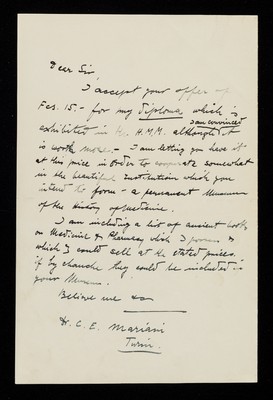 Dear Sir,
I accept your offer of
Fcs. 15.- for my diploma which is
exhibited in the H.M.M. although it
I am convinced
is worth more, - I am letting you have it
at this price in order to cooperate somewhat
in the beautiful Institution which you
intend to form - a permanent Museum
of the History of Medicine.
I am including a list of ancient works
on Medicine & Pharmacy which I possess &
which I could sell at the stated prices.
if by chanche they could be included in
your Museum.
Believe me
Dr. C. E. Mariani
Turin.